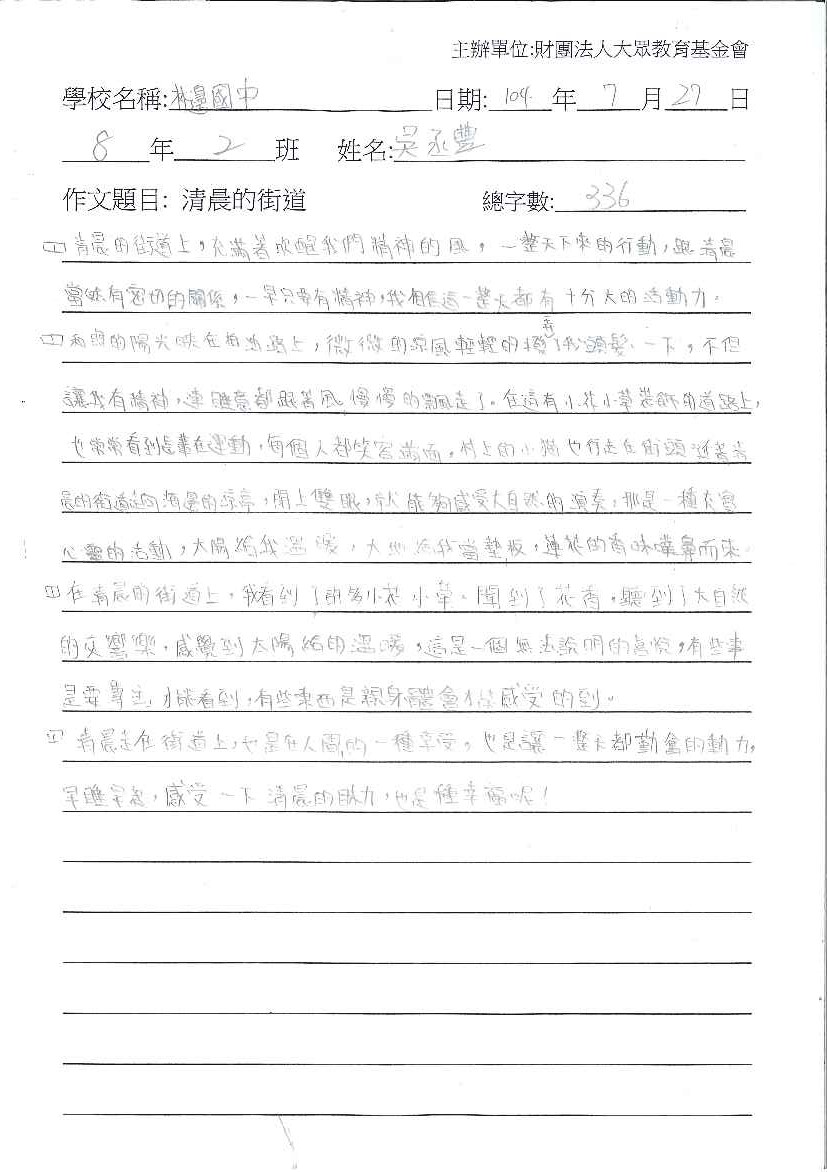 主辦單位:財團法人大眾教育基金會
學校名稱:林邊國中 日期:104年7月27日
8年2班 姓名:吳丞豐
作文題目: 清晨的街道 總字數:336
清晨的街道上,充滿著吹醒我們精神的風,一整天下來的行動,跟清晨
當然有密切的關係,一早只要有精神,我相信這一整天都有十分大的活動力。
的陽光映在柏油路上,微微的涼風輕輕的撥弄了我頭髮一下,不但
讓我有精神,連睡意都跟著風慢慢的飄走了。在這有小花小草裝飾的道路上,
也常常看到長輩在運動,每個人都笑容滿面,村上的小貓也行走在街頭,沿著清
晨的街道走向海邊的涼亭,閉上雙眼,就能夠感受大自然的演奏,那是一種充實
心靈的活動,太陽給我溫暖,大地為我當墊板,蓮花的香味撲鼻而來。
在清晨的街道上,我看到了許多小花小草、聞到了花香,聽到了大自然
的交響樂,感覺到太陽給的溫暖,這是一個無法說明的喜悅,有些事
是要才能看到,有些東西是親身體會才能感受的到。
清晨走在街道上,也是在人間的一種享受,也是讓一整天都勤奮的動力,
早睡早起,感受一下清晨的助力,也是種幸福呢!